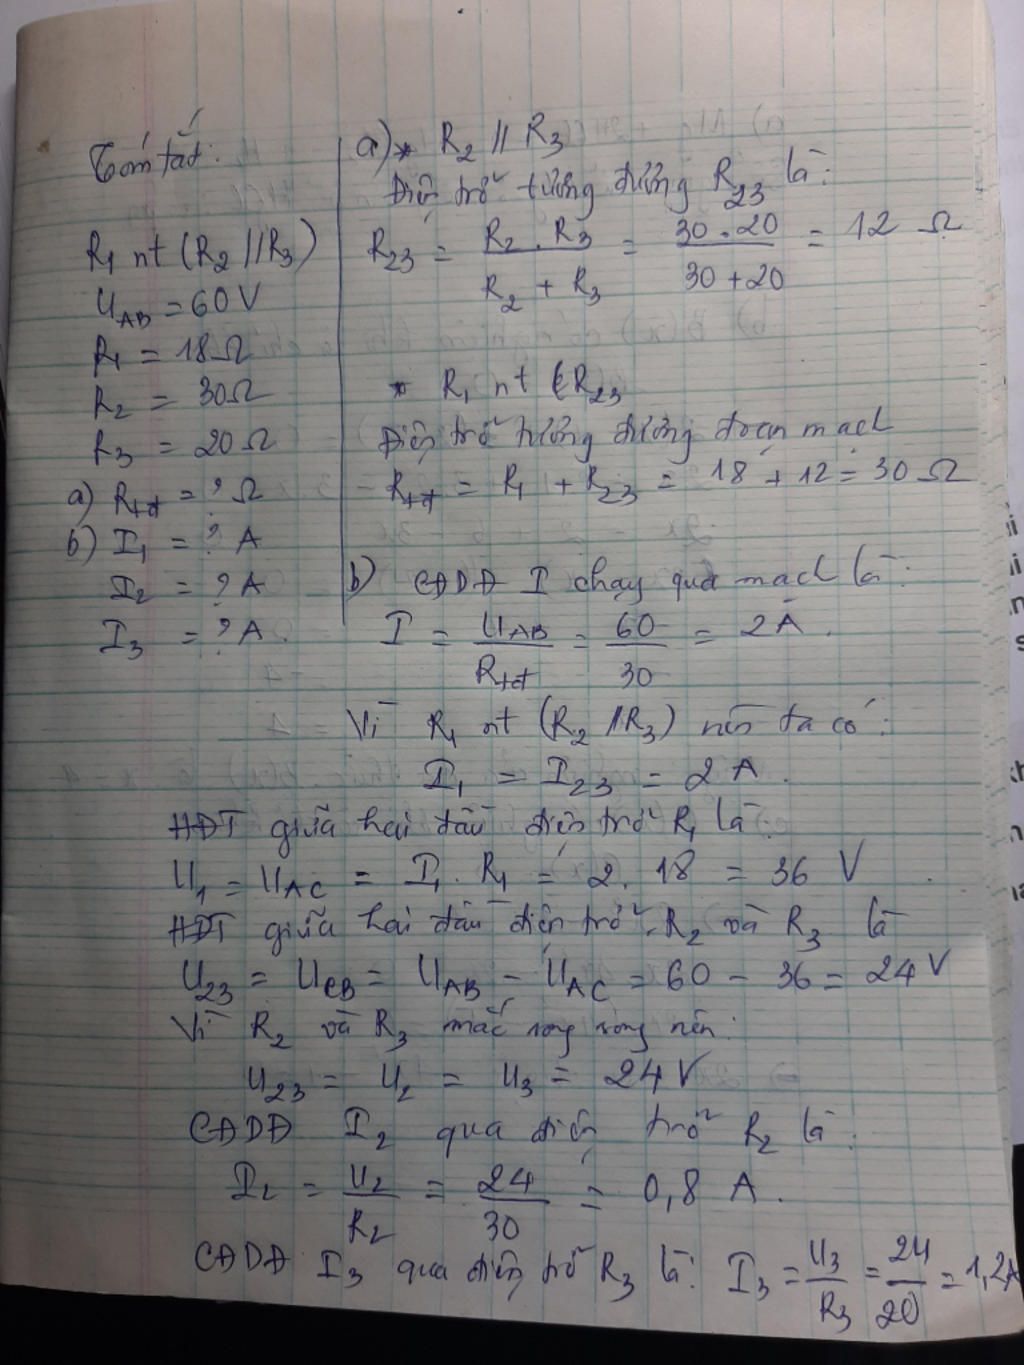 Tóm tắt:
R₁ nt (R₂ // R₃)
U_AB = 60 V
R₁ = 18 Ω
R₂ = 30 Ω
R₃ = 20 Ω
a) Rtđ = ? Ω
b) I₁ = ? A
I₂ = ? A
I₃ = ? A.
a) * R₂ // R₃
Điện trở tương đương R₂₃ là:
R₂₃ = R₂ . R₃ / R₂ + R₃ = 30 . 20 / 30 + 20 = 12 Ω
* R₁ nt R₂₃
Điện trở tương đương đoạn mạch
Rtđ = R₁ + R₂₃ = 18 + 12 = 30 Ω
b) CĐDĐ I chạy qua mạch là:
I = U_AB / Rtđ = 60 / 30 = 2 A.
Vì R₁ nt (R₂ // R₃) nên ta có:
I₁ = I₂₃ = 2 A.
HĐT giữa hai đầu điện trở R₁ là:
U₁ = U_AC = I₁ . R₁ = 2 . 18 = 36 V
HĐT giữa hai đầu điện trở R₂ và R₃ là
U₂₃ = U_CB = U_AB - U_AC = 60 - 36 = 24 V
Vì R₂ và R₃ mắc song song nên:
U₂₃ = U₂ = U₃ = 24 V
CĐDĐ I₂ qua điện trở R₂ là:
I₂ = U₂ / R₂ = 24 / 30 = 0,8 A.
CĐDĐ I₃ qua điện trở R₃ là: I₃ = U₃ / R₃ = 24 / 20 = 1,2A